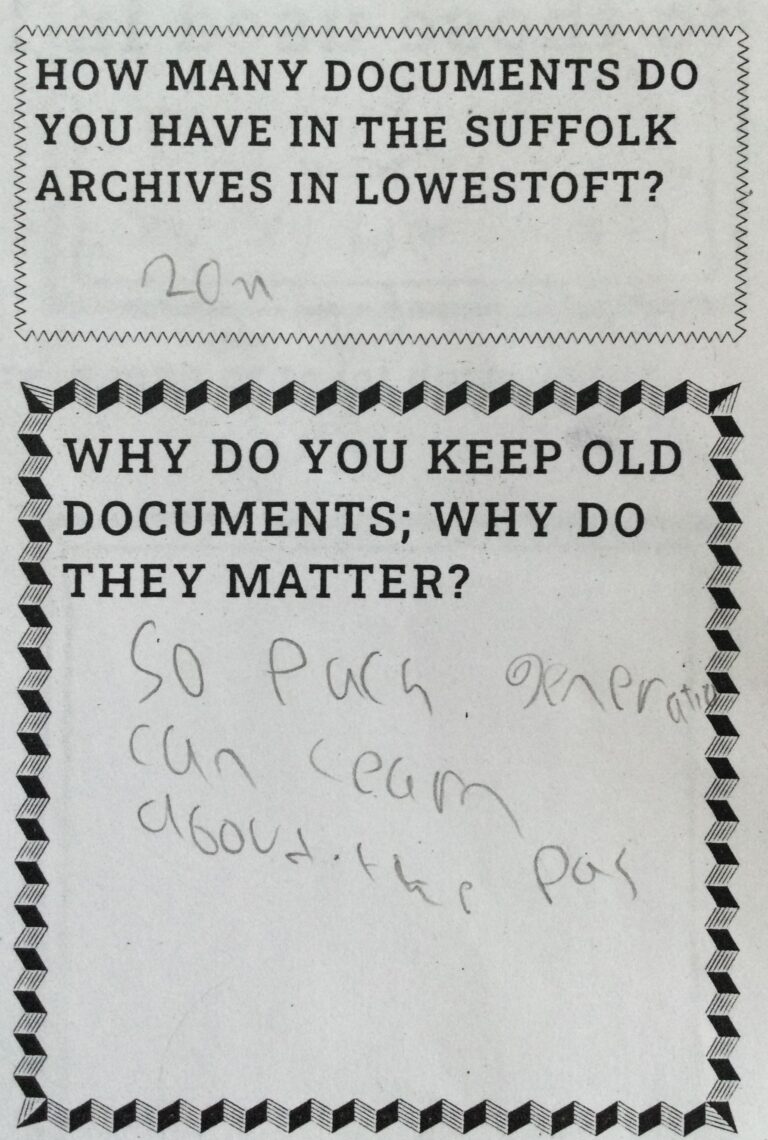 HOW MANY DOCUMENTS DO
YOU HAVE IN THE SUFFOLK
ARCHIVES IN LOWESTOFT?
20m
WHY DO YOU KEEP OLD
DOCUMENTS; WHY DO
THEY MATTER?
So each generation
can learn
about the pas